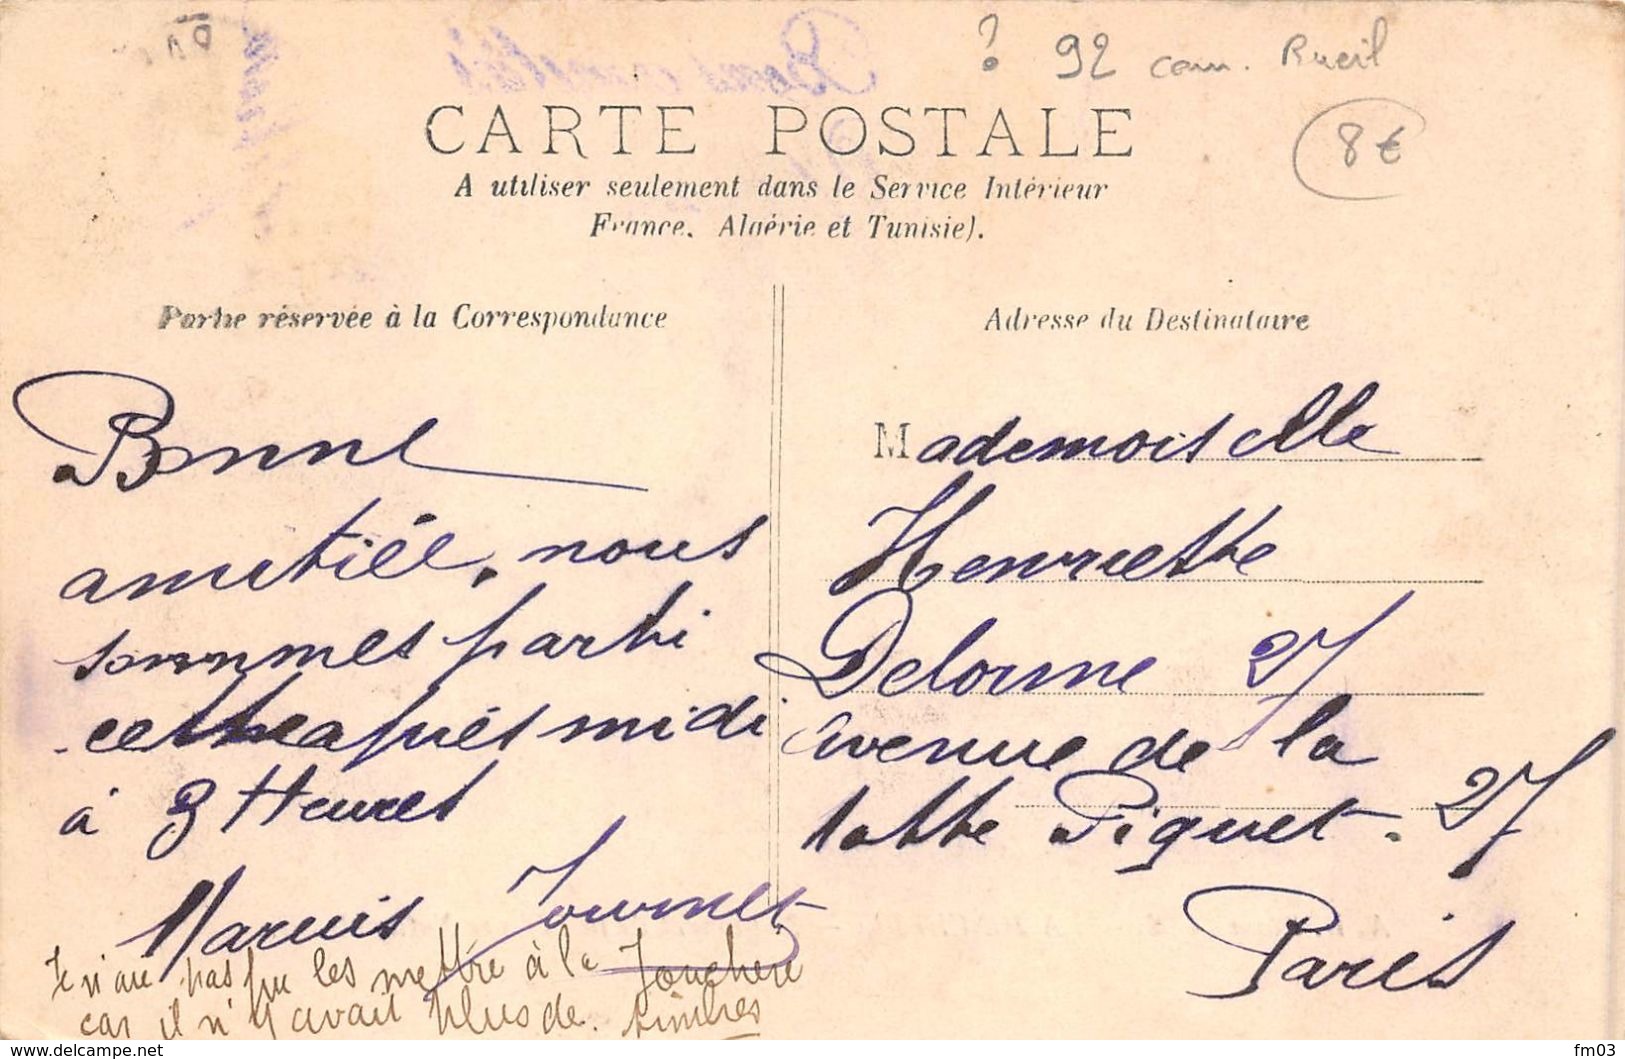 ? 92 com. Rueil
8€
CARTE POSTALE
A utiliser seulement dans le Service Intérieur
France, Algérie et Tunisie).
Partie réservée à la Correspondance
Bonne
amitiée, nous
sommes parti
cette après midi
à 3 Heures
Marius Journet
Je n'aie pas pu les mettre à la Jonchere
car il n'y avait plus de timbres
Adresse du Destinataire
Mademoiselle
Henriette
Delorme 27
Avenue de la
Motte Piquet. 27
Paris
www.delcampe.net
fm03